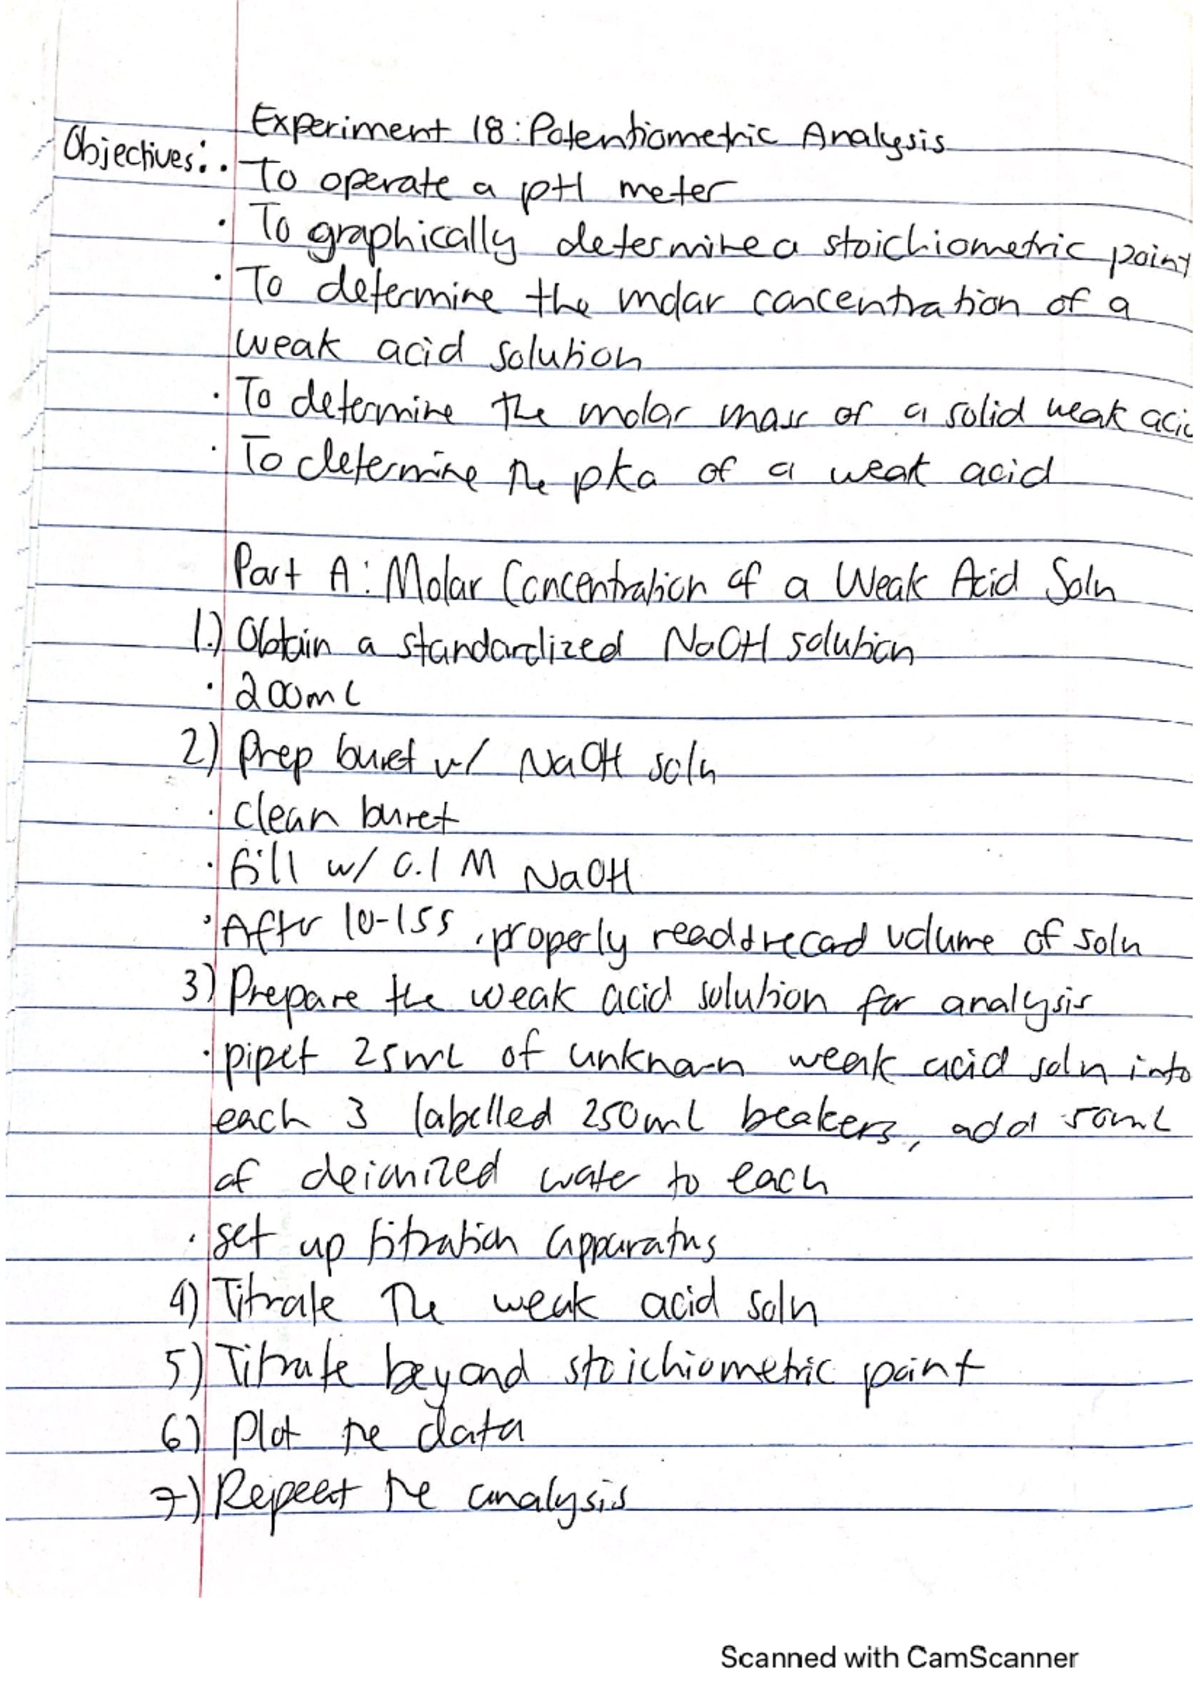 Experiment 18: Potentiometric Analysis
Objectives: · To operate a pH meter
· To graphically determine a stoichiometric point
· To determine the molar concentration of a
weak acid solution
· To determine the molar mass of a solid weak acid
· To determine the pka of a weak acid
Part A: Molar Concentration of a Weak Acid Soln
1.) Obtain a standardized NaOH solution
· 200mL
2) Prep buret w/ NaOH soln
· clean buret
· fill w/ 0.1 M NaOH
· After 10-15s, properly read & record volume of soln
3) Prepare the weak acid solution for analysis
· pipet 25mL of unknown weak acid soln into
each 3 labelled 250mL beakers, add 50mL
of deionized water to each
· set up titration apparatus
4) Titrate the weak acid soln
5) Titrate beyond stoichiometric point
6) Plot the data
7) Repeat the analysis
Scanned with CamScanner